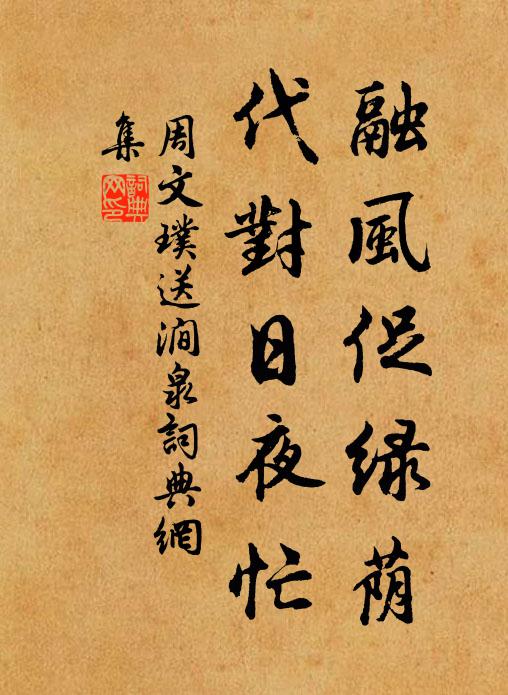 融風促绿荫
代對日夜忙
周文璞送澗泉詞典網
集
詞典
网印